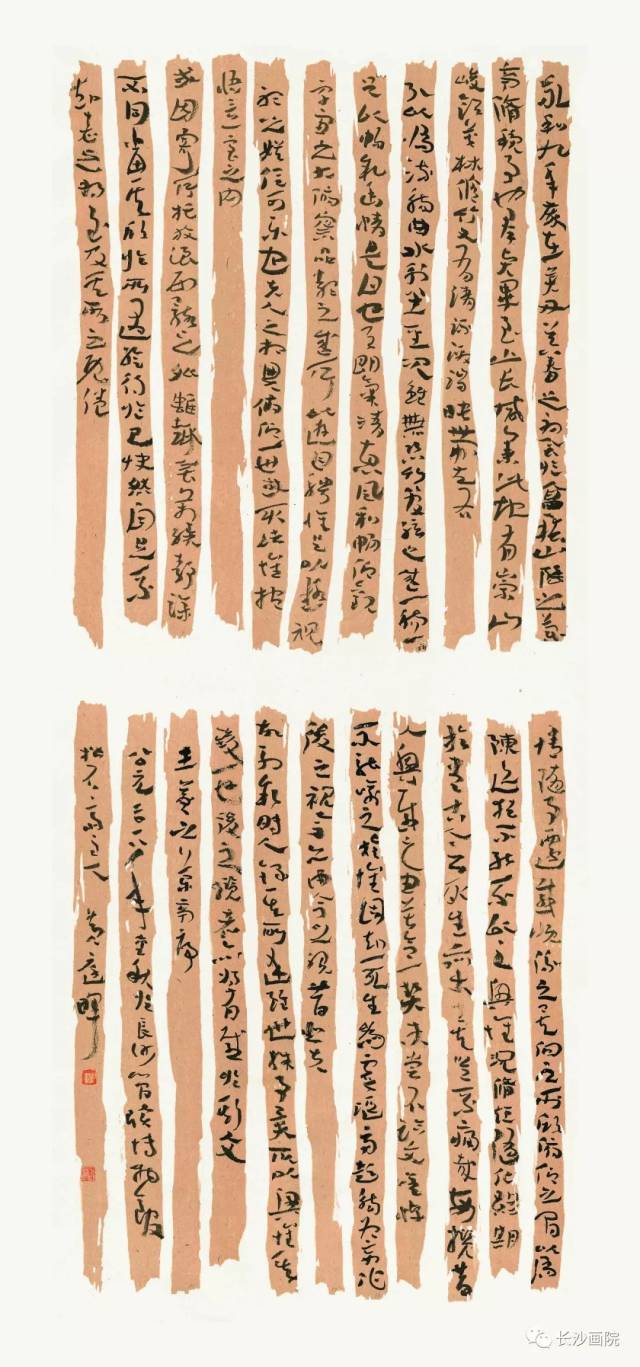 永和九年歲在癸丑暮春之初會於會稽山陰之蘭
亭脩稧事也群賢畢至少長咸集此地有崇山
峻領茂林脩竹又有清流激湍映帶左右
引以為流觴曲水列坐其次雖無絲竹管弦之盛一觴一詠
足以暢敘幽情是日也天朗氣清惠風和暢仰觀
宇宙之大俯察品類之盛所以遊目騁懷足以極視
聽之娛信可樂也夫人之相與俯仰一世或取諸懷抱
悟言一室之內
或因寄所托放浪形骸之外雖趣舍萬殊靜躁
不同當其欣於所遇暫得於己快然自足不
知老之將至及其所之既倦
情隨事遷感慨係之矣向之所欣俯仰之間以為
陳迹猶不能不以之興懷況脩短隨化終期
於盡古人云死生亦大矣豈不痛哉每攬昔
人興感之由若合一契未嘗不臨文嗟悼
不能喻之於懷固知一死生為虛誕齊彭殤為妄作
後之視今亦由今之視昔悲夫
故列敘時人錄其所述雖世殊事異所以興懷其
致一也後之攬者亦將有感於斯文
王羲之蘭亭序
公元二〇一八年秋於長沙簡牘博物館
齋主人 黃庭
长沙画院